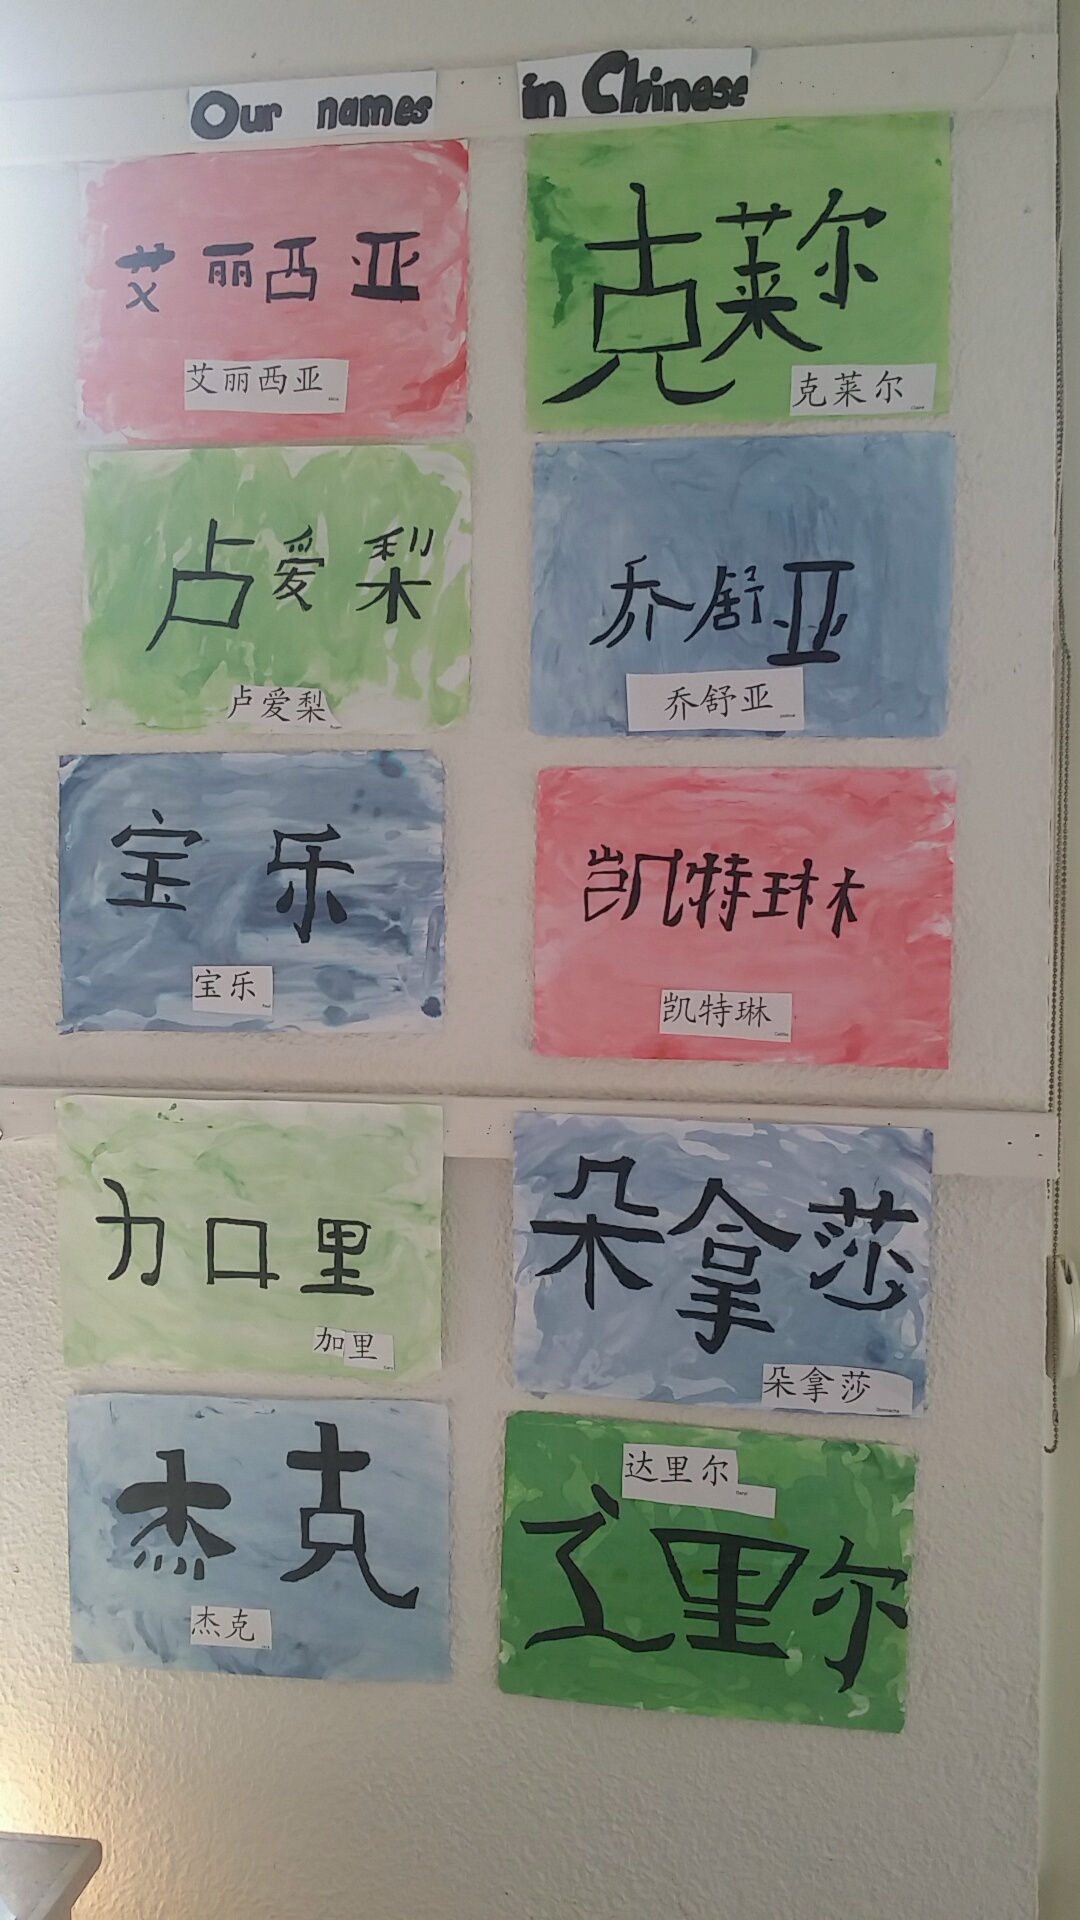 Our names in Chinese
艾丽西亚
艾丽西亚
克莱尔
克莱尔
Claire
卢爱梨
卢爱梨
乔舒亚
乔舒亚
Joshua
宝乐
宝乐
Paul
凯特琳
凯特琳
加里
加里
Gary
朵拿莎
朵拿莎
杰克
杰克
Jack
达里尔
Daryl
辶里尔